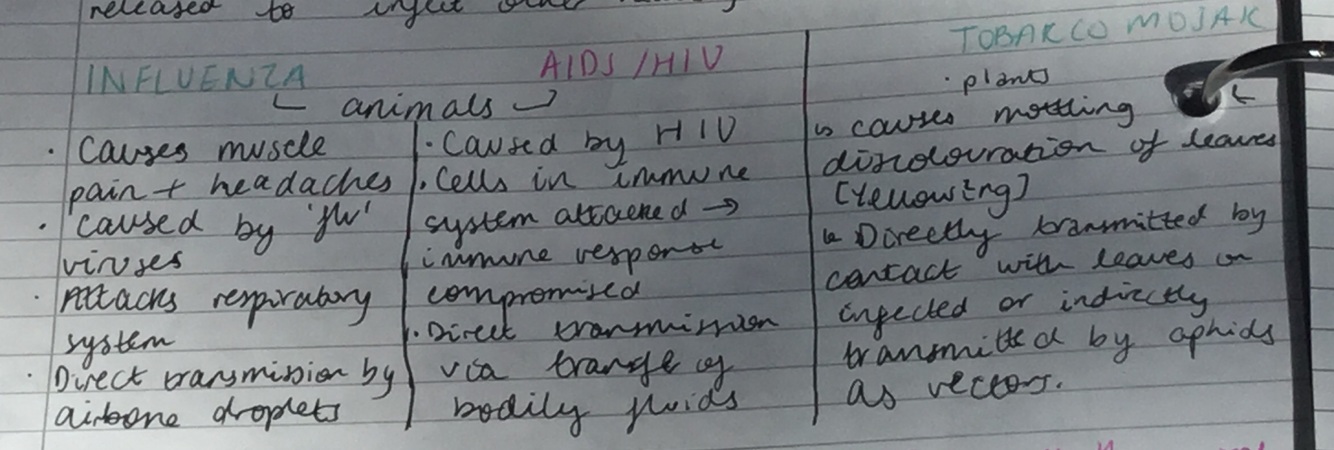 released to infect other
INFLUENZA
AIDS/HIV
TOBACCO MOSAIC
animals
· plants
· Causes muscle
pain + headaches
· Caused by 'flu'
viruses
· Attacks respiratory
system
· Direct transmission by
airbone droplets
· Caused by HIV
· Cells in immune
system attacked →
immune response
compromised
· Direct transmission
via transfe of
bodily fluids
↳ causes mottling
discolouration of leaves
(Yellowing)
↳ Directly transmitted by
contact with leaves on
infected or indirectly
transmitted by aphids
as vectors.